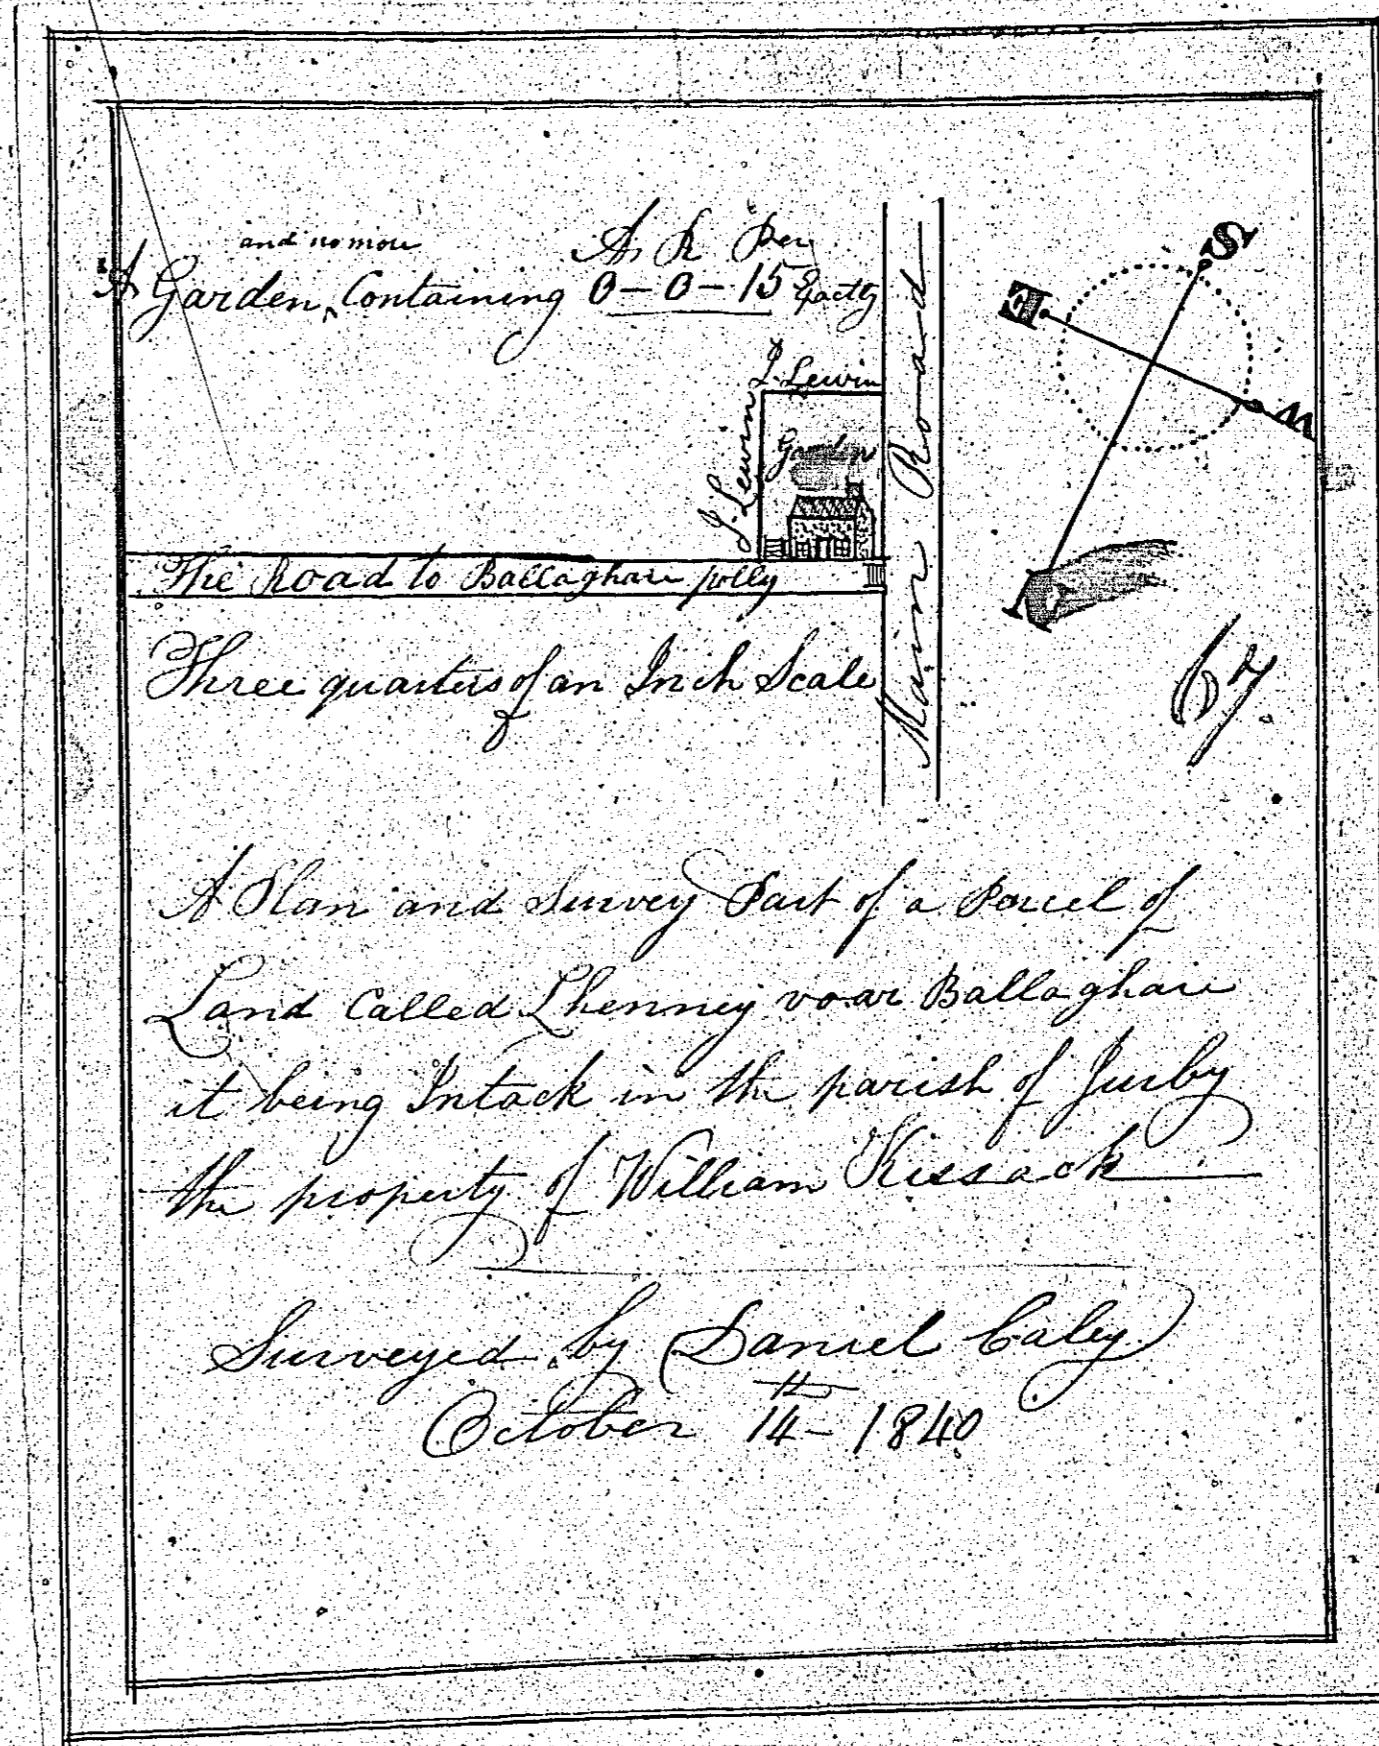 and no more
A R Per
A Garden, Containing 0-0-15 Exactly
J. Lewin
J. Lewin
Garden
Main Road
S
E
W
N
The Road to Ballaghaie polly
Three quarters of an Inch Scale
67
A Plan and Survey Part of a Parcel of
Land Called Lhenney voar Ballaghaie
it being Intack in the parish of Jurby
the property of William Kissack
Surveyed by Daniel Caley
October 14th - 1840